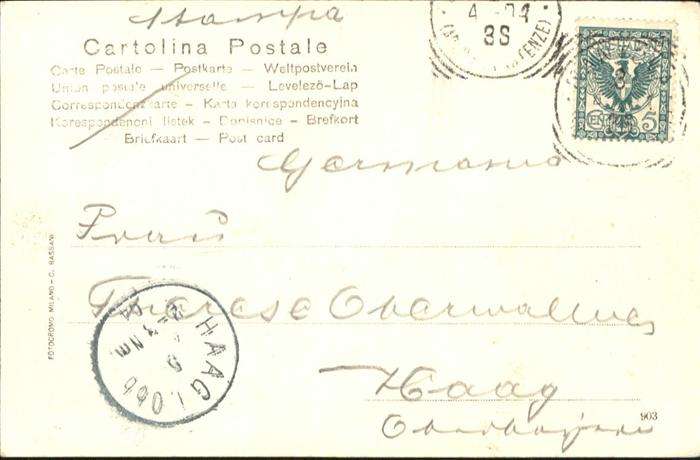 Stampa
Cartolina Postale
Carte Postale — Postkarte — Weltpostverein
Union postale universelle — Levelező-Lap
Correspondenzkarte — Karta korespondencyjna
Korespondenční listek — Dopisnice — Brefkort
Briefkaart — Post card
4
3S
5
Germania
Frau
Therese Oberwallner
Haag
Oberbayern
HAAG i. Obb
FOTOCROMO MILANO — C. BASSANI
903